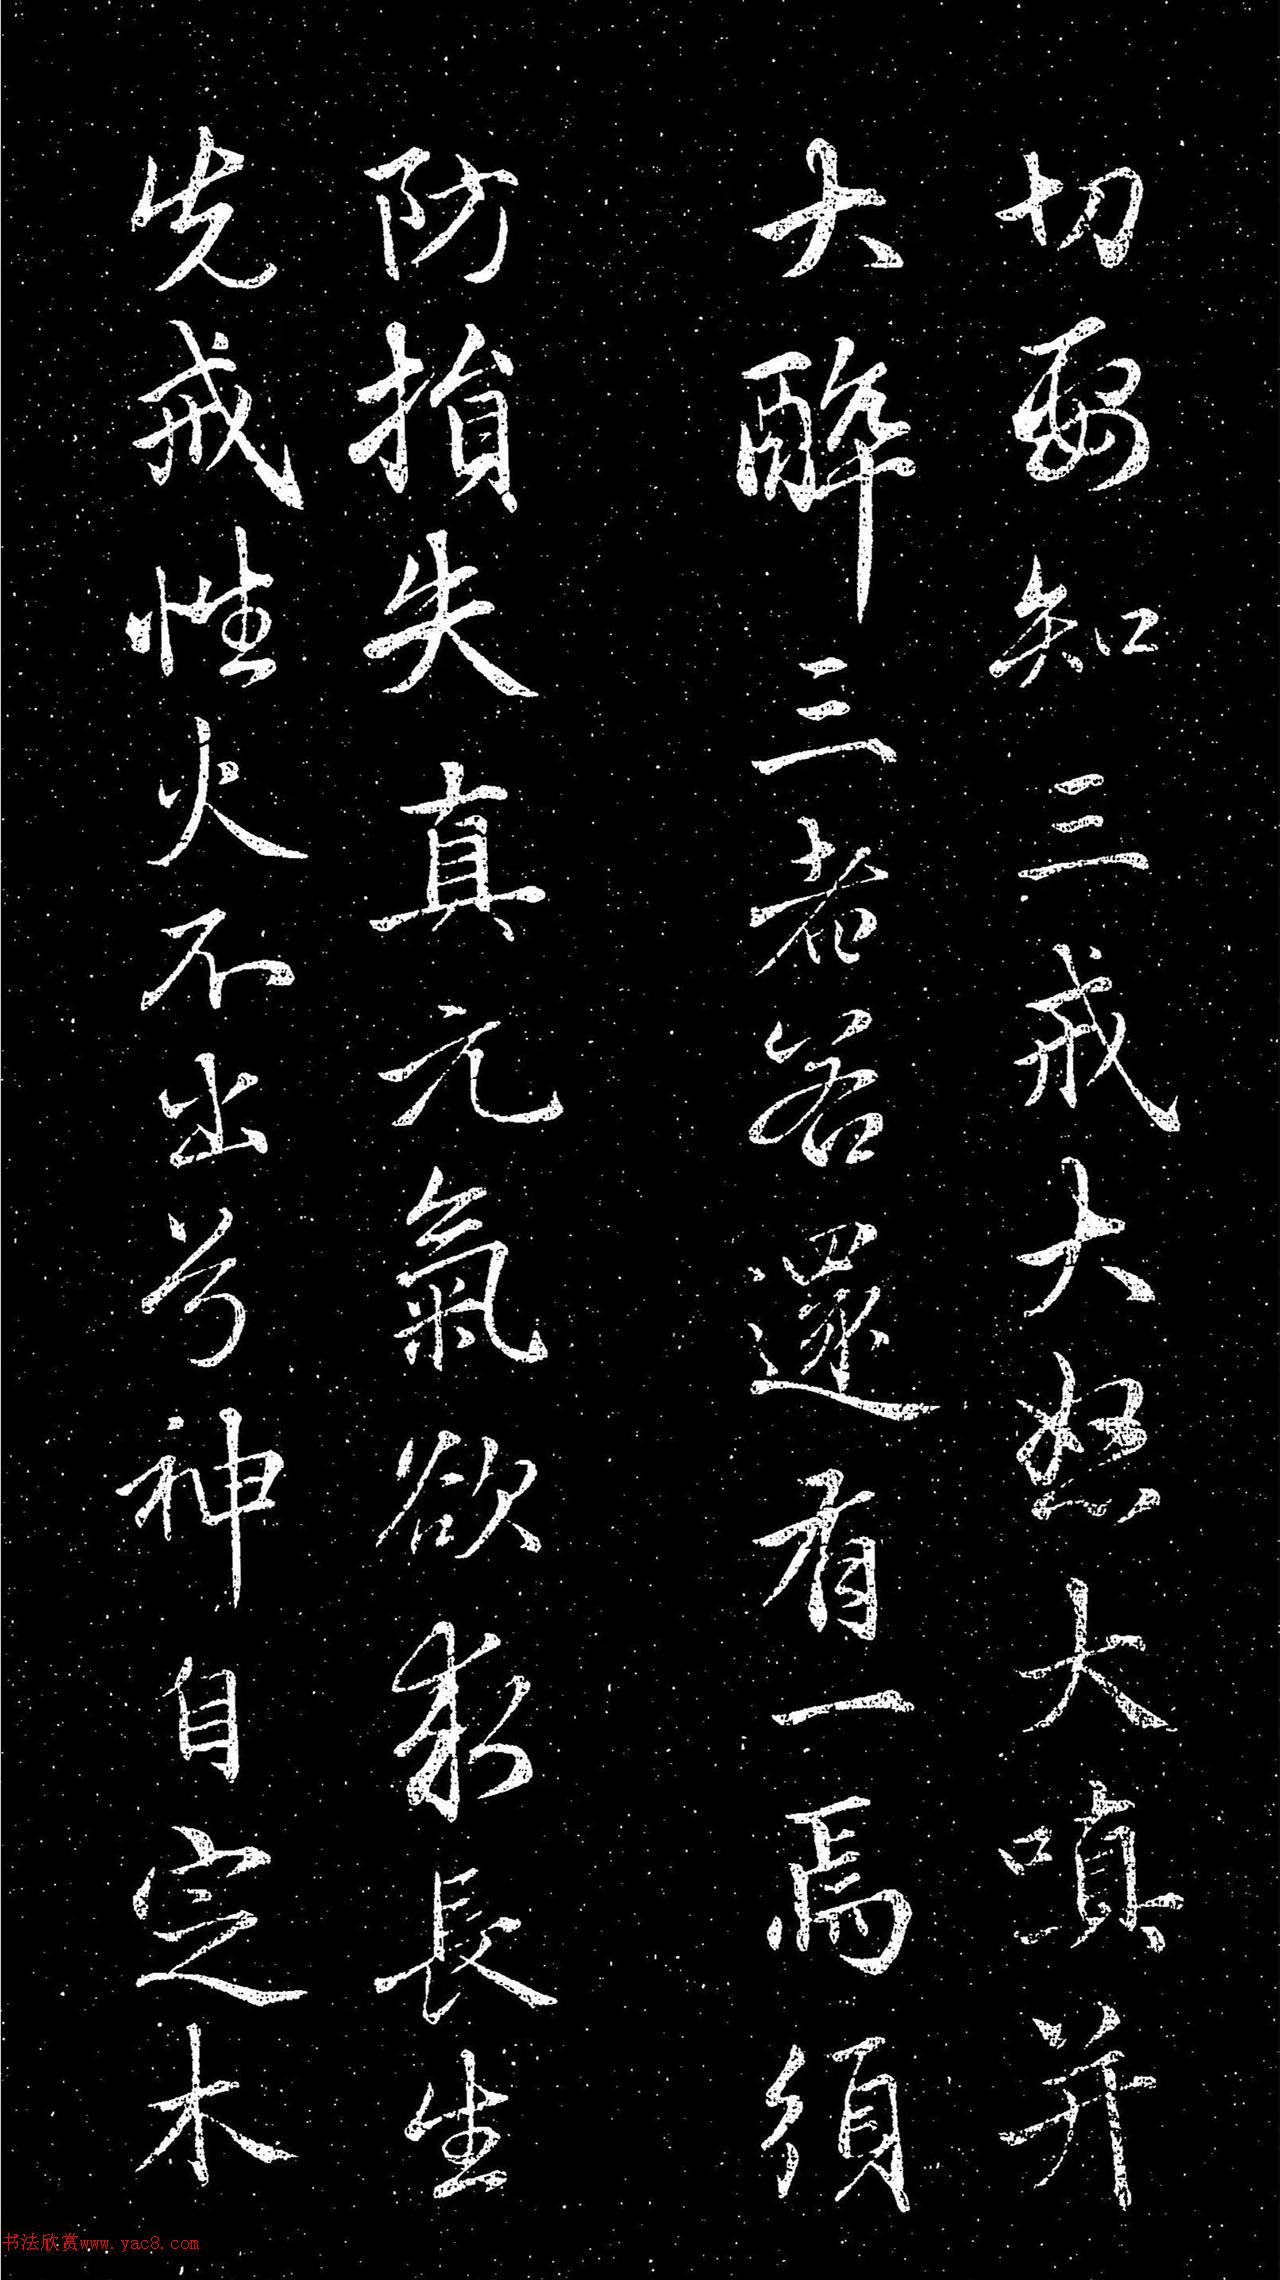 切要知三戒大怒大嗔并
大醉三者若還有一焉須
防損失真元氣欲求長生
先戒性火不出兮神自定木
书法欣赏www.yac8.com